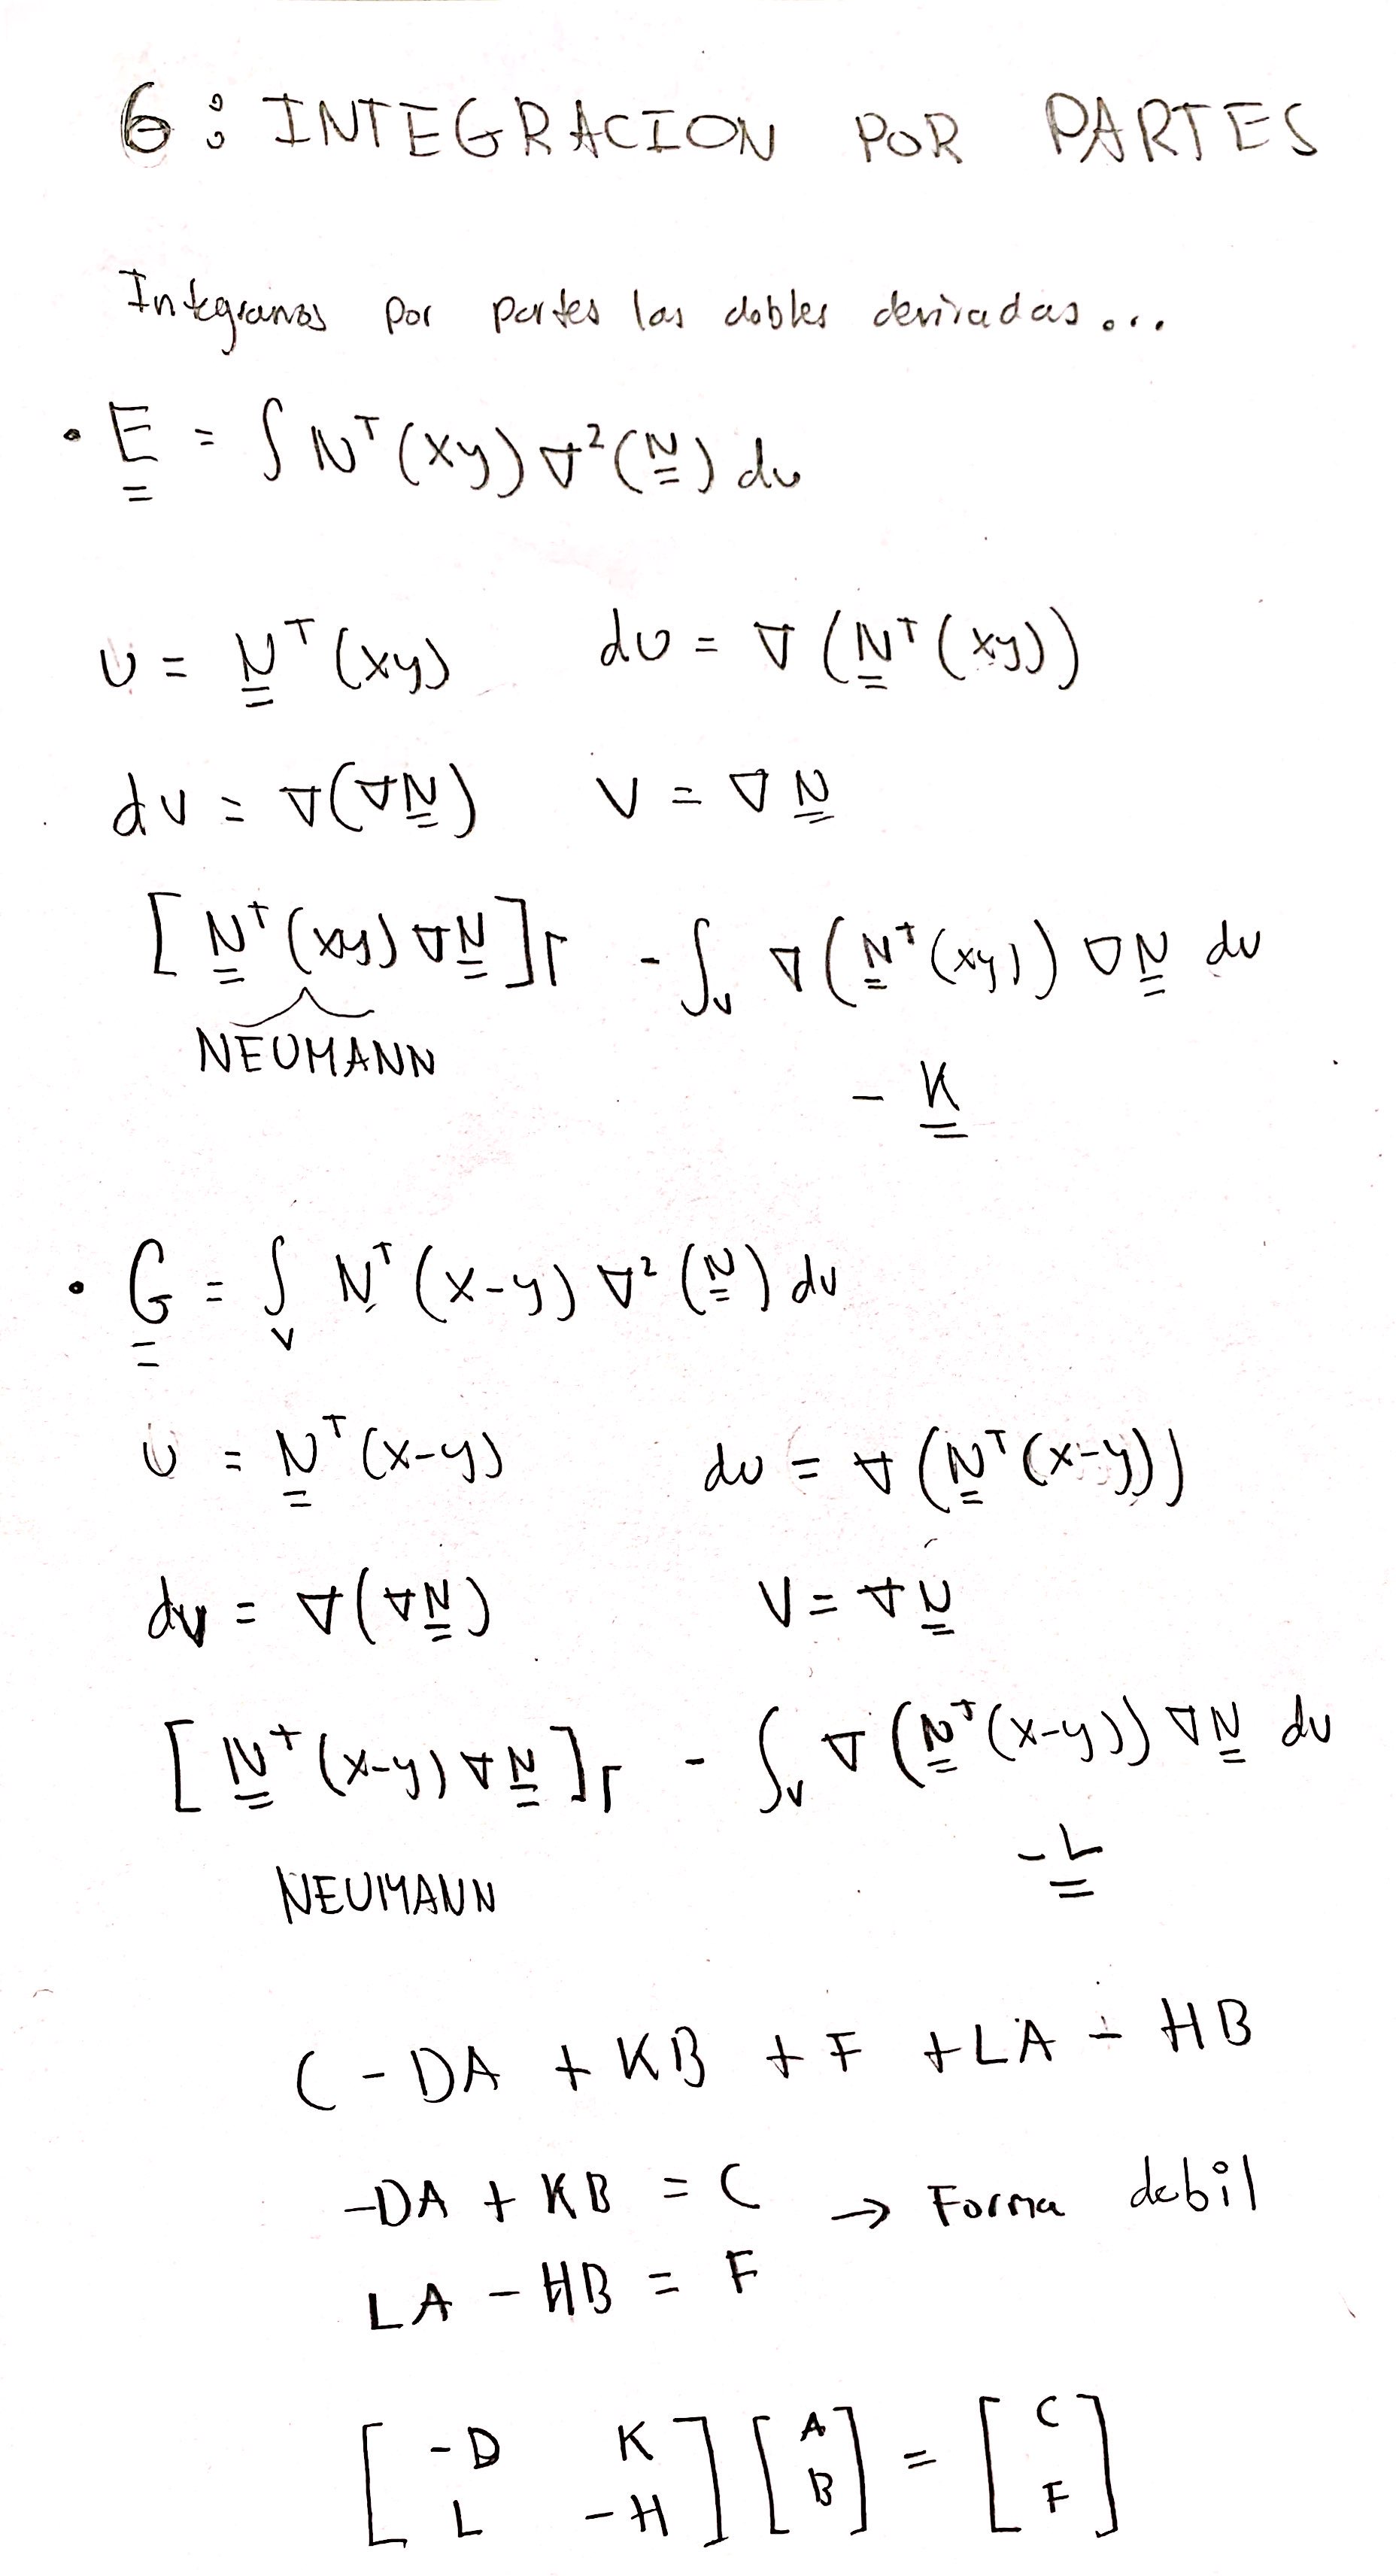 6: INTEGRACION POR PARTES
Integramos por partes las dobles derivadas...
• E = ∫ Nᵀ (xy) ∇² (N) dv
U = Nᵀ (xy) du = ∇ (Nᵀ (xy))
dv = ∇(∇N) V = ∇ N
[Nᵀ (xy) ∇N]Γ - ∫v ∇ (Nᵀ (xy)) ∇N dv
NEUMANN
- K
• G = ∫v Nᵀ (x-y) ∇² (N) dv
U = Nᵀ (x-y) du = ∇ (Nᵀ (x-y))
dv = ∇(∇N) V = ∇ N
[Nᵀ (x-y) ∇N]Γ - ∫v ∇ (Nᵀ (x-y)) ∇N dv
- L
NEUMANN
C - DA + KB + F + LA - HB
-DA + KB = C → Forma debil
LA - HB = F
[-D K] [A] = [C]
[L -H] [B] [F]